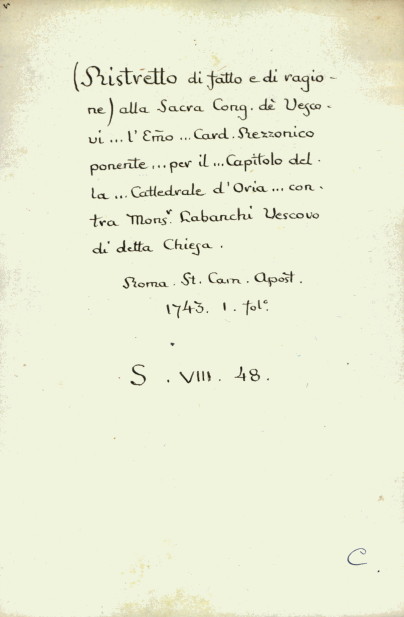 (Ristretto di fatto e di ragio-
ne) alla Sacra Cong. dè Vesco-
vi ... l'Em̃o ... Card. Rezzonico
ponente ... per il ... Capitolo del-
la ... Cattedrale d'Oria ... con-
tra Monsr. Labanchi Vescovo
di detta Chiesa.
Roma. St. Cam. Apost.
1743. 1. fol°.
S. VIII. 48.
C.